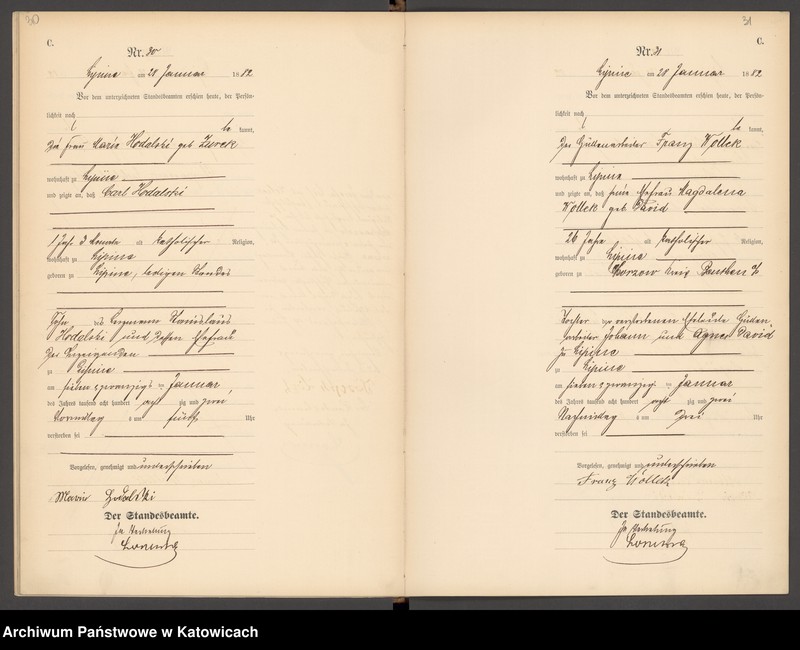 30
C.
Nr. 30
Lipine am 28 Januar 1882
Vor dem unterzeichneten Standesbeamten erschien heute, der Persön-
lichkeit nach
be kannt,
Frau Marie Hodalski geb Zurek
wohnhaft zu Lipine
und zeigte an, daß Carl Hodalski
1 Jahr 3 Monate alt katholischer Religion,
wohnhaft zu Lipine
geboren zu Lipine, ledigen Standes
Sohn des Bergmann Stanislaus
Hodalski und dessen Ehefrau
der Anzeigenden
zu Lipine
am sieben zwanzigst en Januar
des Jahres tausend acht hundert acht zig und zwei,
Vormittag s um fünf Uhr
verstorben sei
Vorgelesen, genehmigt und unterschrieben
Marie Hodalski
Der Standesbeamte.
In Vertretung
31
C.
Nr. 31
Lipine am 28 Januar 1882
Vor dem unterzeichneten Standesbeamten erschien heute, der Persön-
lichkeit nach
be kannt,
Der Hüttenarbeiter Franz Wollek
wohnhaft zu Lipine
und zeigte an, daß seine Ehefrau Magdalena
Wollek geb David
26 Jahre alt katholischer Religion,
wohnhaft zu Lipine
geboren zu Chorzow Kreis Beuthen O/S
Tochter der verstorbenen Eheleute Hütten
arbeiter Johann und Agnes David
zu Lipine
zu Lipine
am sieben zwanzigst en Januar
des Jahres tausend acht hundert acht zig und zwei
Nachmittag s um zwei Uhr
verstorben sei
Vorgelesen, genehmigt und unterschrieben
Franz Wollek
Der Standesbeamte.
In Vertretung
Archiwum Państwowe w Katowicach